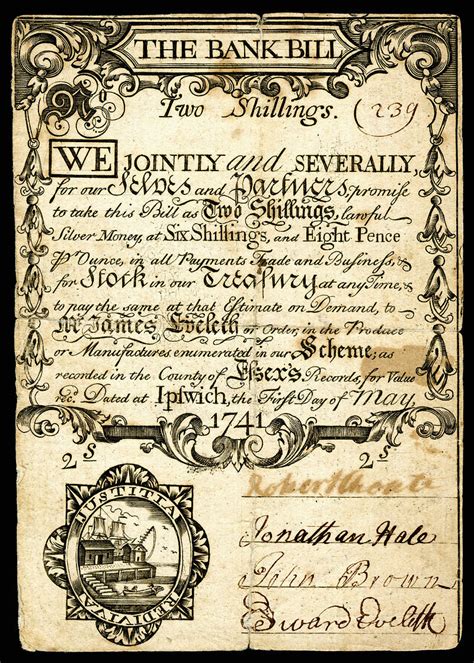 THE BANK BILL
No
Two Shillings. (239)
WE JOINTLY and SEVERALLY,
for our Selves and Partners, promise
to take this Bill as Two Shillings, lawful
Silver Money, at Six Shillings, and Eight Pence
℔ Ounce, in all Payments Trade and Business, &
for Stock in our Treasury at any Time, &
to pay the same at that Estimate on Demand, to
Mr. James Eveleth or Order, in the Produce
or Manufactures enumerated in our Scheme; as
recorded in the County of Essex's Records, for Value
rec. Dated at Ipswich, the First Day of May,
1741
2s 2s
Robert Choate
JUSTITIA REDIVIVA
Jonathan Hale
John Brown
Edward Eveleth